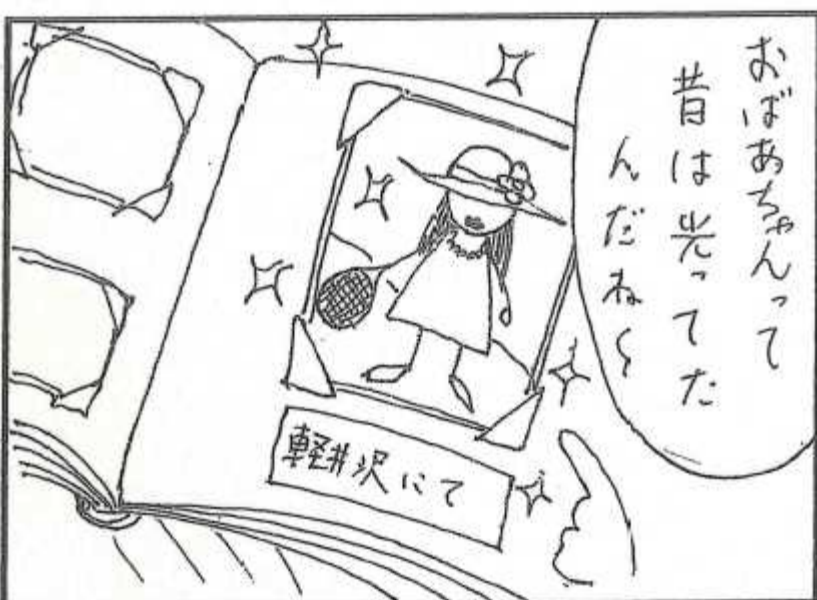 おばあちゃんって
昔は光ってた
んだね〜
軽井沢にて